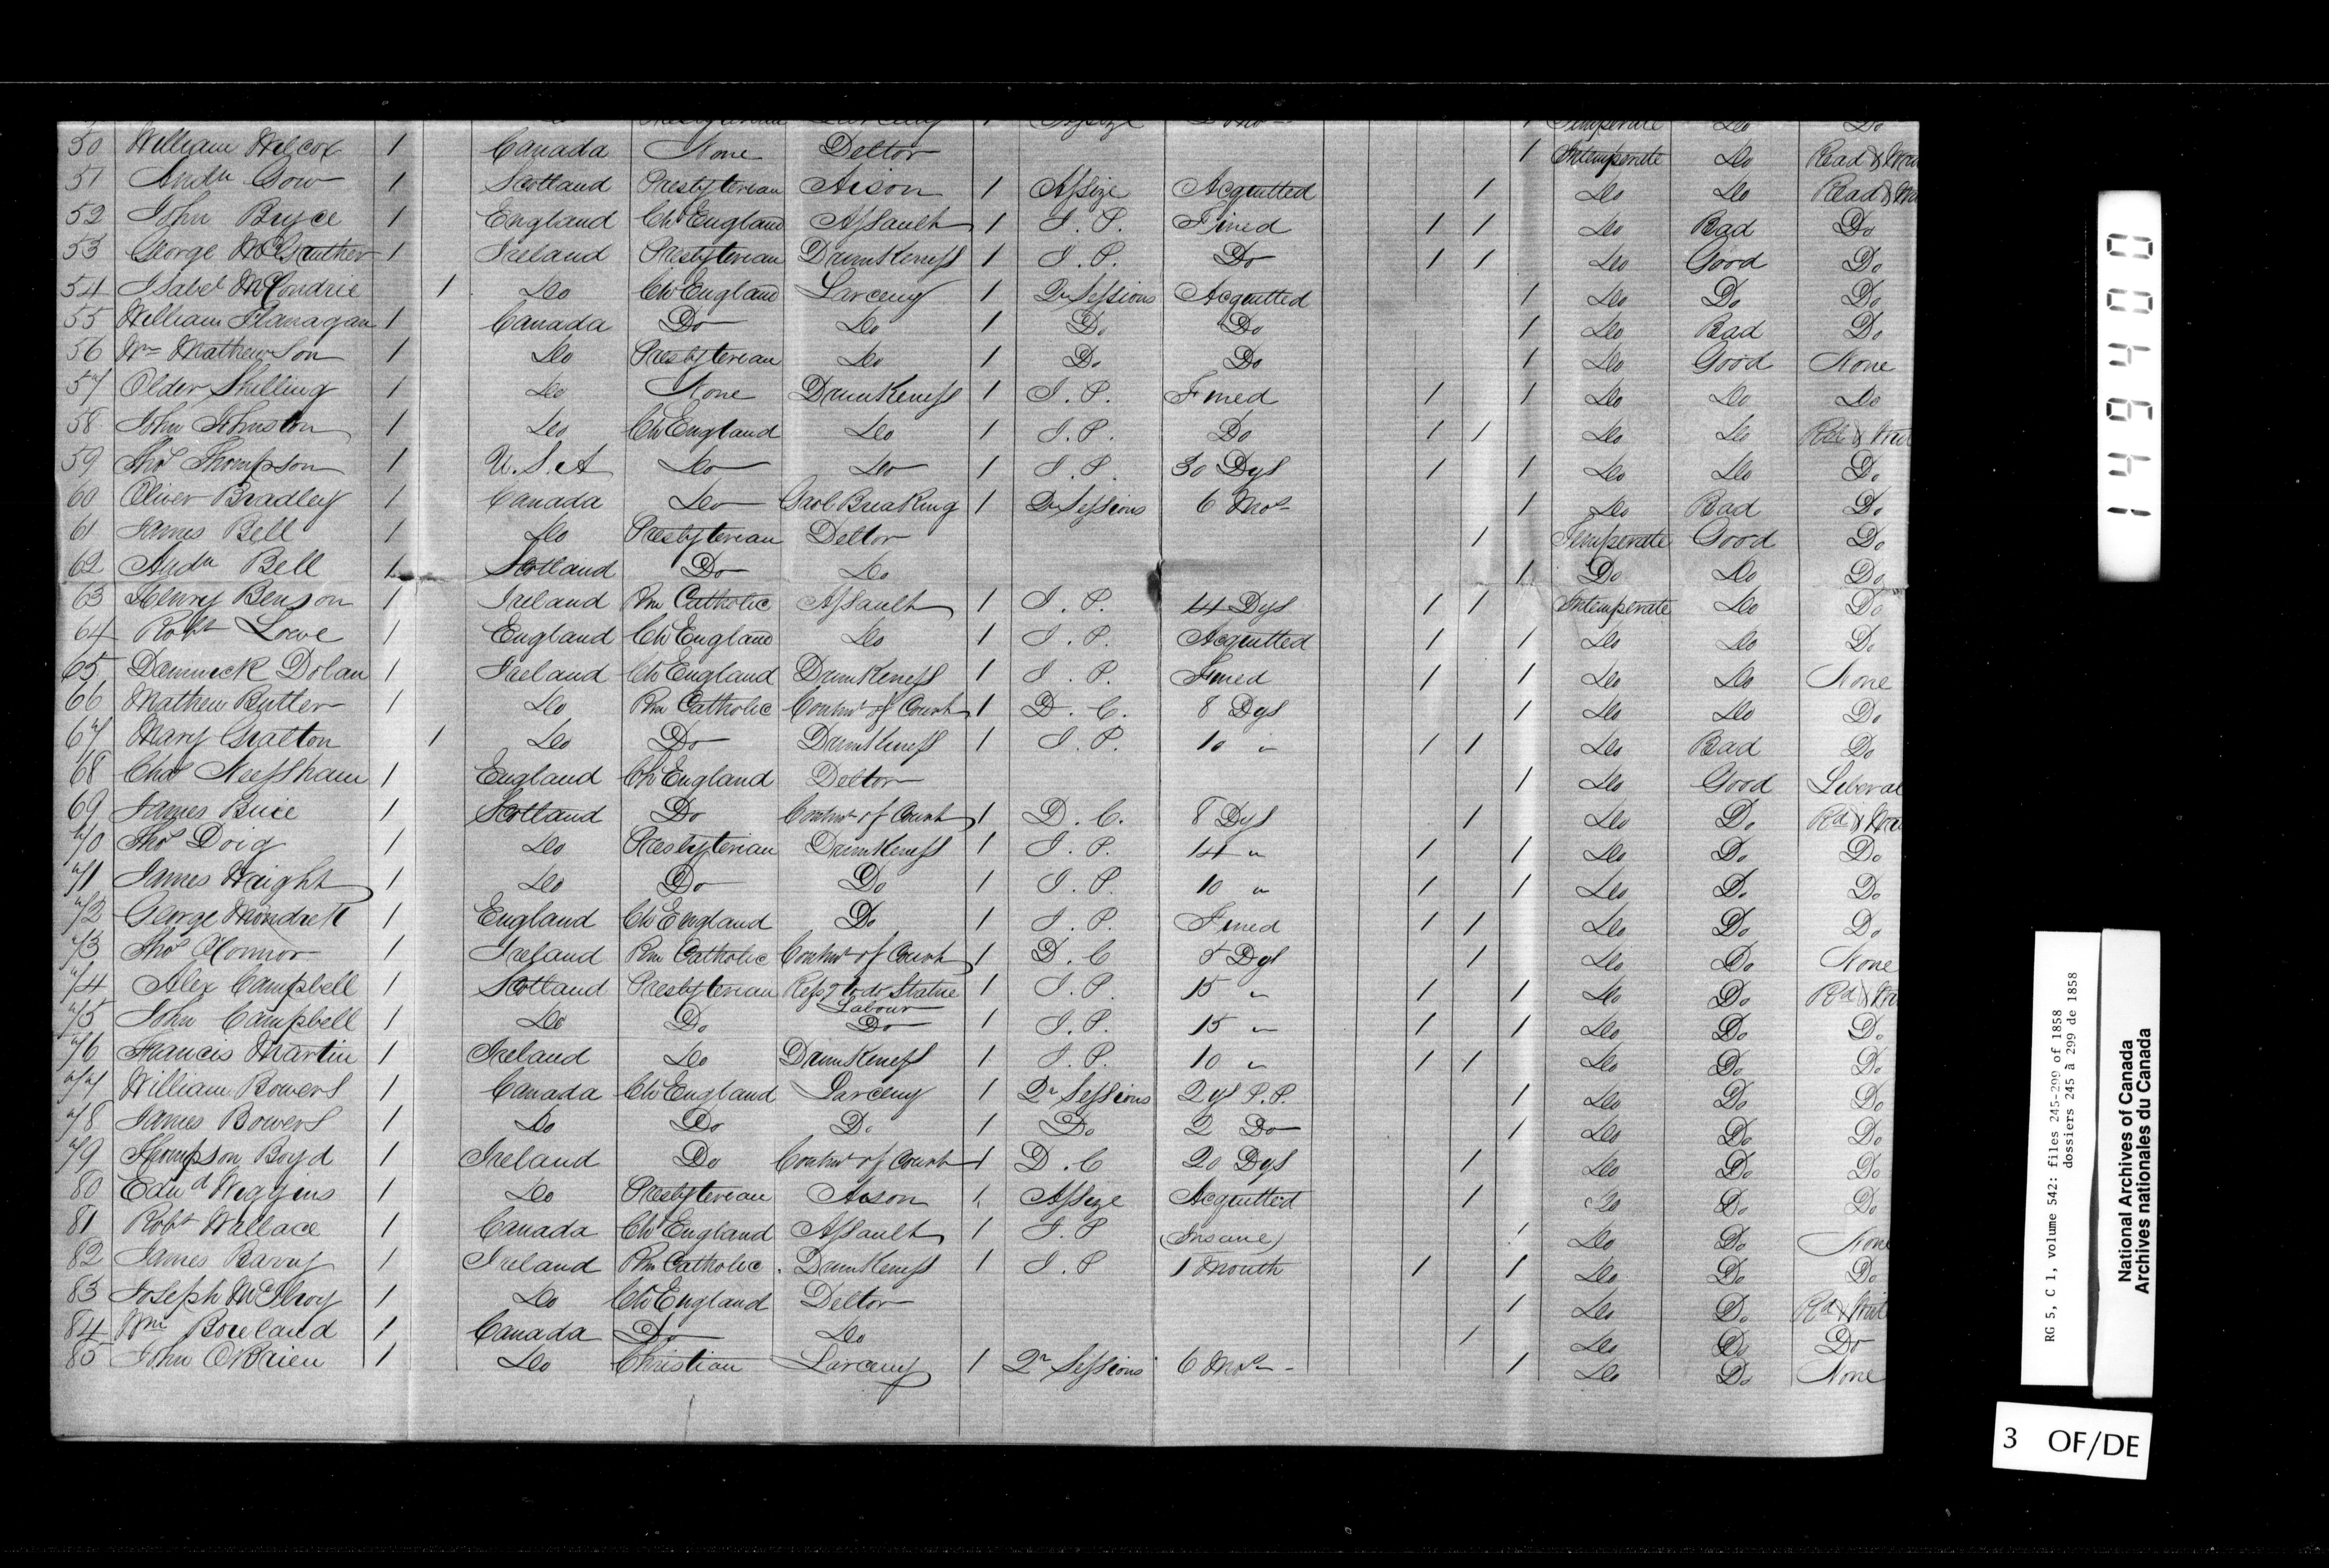 Presbyterian Larceny 1 Assize 1 Temperate Do Do
50 William Wilcox 1 Canada None Debtor 1 Intemperate Do Read &
51 Andw Gow 1 Scotland Presbyterian Arson 1 Assize Acquitted 1 Do Do Read &
52 John Bryce 1 England Ch England Assault 1 J. P. Fined 1 1 Do Bad Do
53 George 1 Ireland Presbyterian Drunkeness 1 J. P. Do 1 1 Do Good Do
54 Isabel McCondrie 1 Do Ch England Larceny 1 Qr Sessions Acquitted 1 Do Do Do
55 William Flanagan 1 Canada Do Do 1 Do Do 1 Do Bad Do
56 Wm Mathewson 1 Do Presbyterian Do 1 Do Do 1 Do Good None
57 Older Shilling 1 Do None Drunkeness 1 J. P. Fined 1 1 Do Do Do
58 John Johnston 1 Do Ch England Do 1 J. P. Do 1 1 Do Do
59 Thos Thompson 1 U. S. A Do Do 1 J. P. 30 Dys 1 1 Do Do Do
60 Oliver Bradley 1 Canada Do Gaol Breaking 1 Qr Sessions 6 Mos 1 Do Bad Do
61 James Bell 1 Do Presbyterian Debtor 1 Temperate Good Do
62 Andw Bell 1 Scotland Do Do 1 Do Do Do
63 Henry Benson 1 Ireland Rm Catholic Assault 1 J. P. 14 Dys 1 1 Intemperate Do Do
64 Robt Lowe 1 England Ch England Do 1 J. P. Acquitted 1 1 Do Do Do
65 Dominick Dolan 1 Ireland Ch England Drunkeness 1 J. P. Fined 1 1 Do Do None
66 Mathew Butler 1 Do Rm Catholic Contmt of Court 1 D. C. 8 Dys 1 Do Do Do
67 Mary Gratton 1 Do Do Drunkeness 1 J. P. 10 " 1 1 Do Bad Do
68 Chas Neessham 1 England Ch England Debtor 1 Do Good Liberal
69 James Buie 1 Scotland Do Contmt of Court 1 D. C. 8 Dys 1 Do Do Rd &
70 Thos Doig 1 Do Presbyterian Drunkeness 1 J. P. 14 " 1 1 Do Do Do
71 James Wright 1 Do Do Do 1 J. P. 10 " 1 1 Do Do Do
72 George 1 England Ch England Do 1 J. P. Fined 1 1 Do Do Do
73 Thos O'Connor 1 Ireland Rm Catholic Contmt of Court 1 D. C 5 Dys 1 Do Do None
74 Alex Campbell 1 Scotland Presbyterian Refsg to do Statue 1 J. P. 15 " 1 1 Do Do Rd &
Labour
75 John Campbell 1 Do Do Do 1 J. P. 15 " 1 1 Do Do Do
76 Francis Martin 1 Ireland Do Drunkeness 1 J. P. 10 " 1 1 Do Do Do
77 William Bowers 1 Canada Ch England Larceny 1 Qr Sessions 2 ys P. P. 1 Do Do Do
78 James Bowers 1 Do Do Do 1 Do 2 Do 1 Do Do Do
79 Thompson Boyd 1 Ireland Do Contmt of Court 1 D. C 20 Dys 1 Do Do Do
80 Edwd Wiggins 1 Do Presbyterian Arson 1 Assize Acquitted 1 Do Do Do
81 Robt Wallace 1 Canada Ch England Assault 1 J. P (Insane) 1 Do Do None
82 James Barry 1 Ireland Rm Catholic Drunkeness 1 J. P 1 Month 1 1 Do Do Do
83 Joseph McIlroy 1 Do Ch England Debtor 1 Do Do Rd &
84 Wm Boreland 1 Canada Do Do 1 Do Do Do
85 John O'Brien 1 Do Christian Larceny 1 Qr Sessions 6 Mos 1 Do Do None
149400
RG 5, C 1, volume 542: files 245-299 of 1858
dossiers 245 à 299 de 1858
National Archives of Canada
Archives nationales du Canada
3 OF/DE